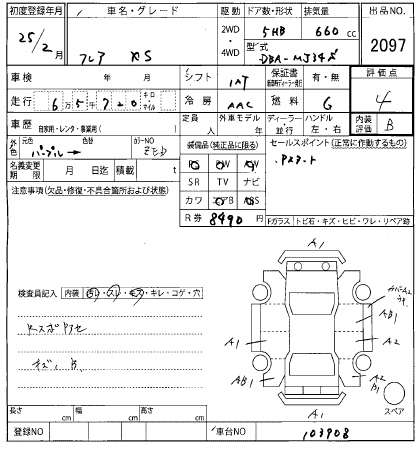 初度登録年月 車名・グレード 駆動 ドア数・形状 排気量 出品NO.
25/2月 フレア XS 2WD・4WD 5HB 660cc 2097
型式 DBA-MJ34S
車検 年 月 シフト IAT 保証書 有・無 評価点
走行 6万5千720 キロ・マイル 冷房 AAC 燃料 G 4
車歴 自家用・レンタ・事業用( ) 定員 人 外車モデル 年 ディーラー・並行 ハンドル 左・右 内装評価 B
外色 元色 パープル→ 色替 カラーNO ZED 装備品(純正品に限る) セールスポイント(正常に作動するもの)
名義変更期限 月 日迄 積載 t PS PW ・Pスタート
注意事項(欠品・修復・不具合箇所および状態) SR TV ナビ
カワ エアB ABS
R券 8490円 Fガラス トビ石・キズ・ヒビ・ワレ・リペア跡
A1
検査員記入 内装 キレ・コゲ・穴
カバーA2
AB1
A1 A2
キズ、B
AB1 A2 B1
A1 スペア
長さ cm 幅 cm 高さ cm
登録NO 車台NO 103908